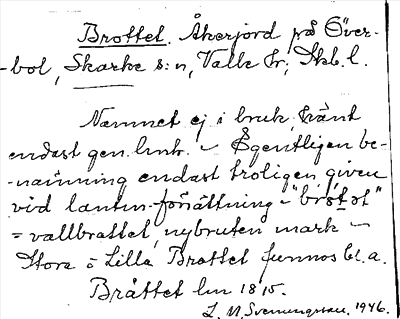 Brottet. Åkerjord på Över-
-bol, Skarke s:n, Valle hr; Skb. l.
Namnet ej i bruk, känt
endast gen. lmk. - Egentligen be-
-nämning endast troligen given
vid lantm.förrättning - "brötət"
= vallbrottet, nybruten mark -
Stora o Lilla Brottet funnos bl. a.
Bråttet lm 1815.
L. M. Svenungsson. 1946.